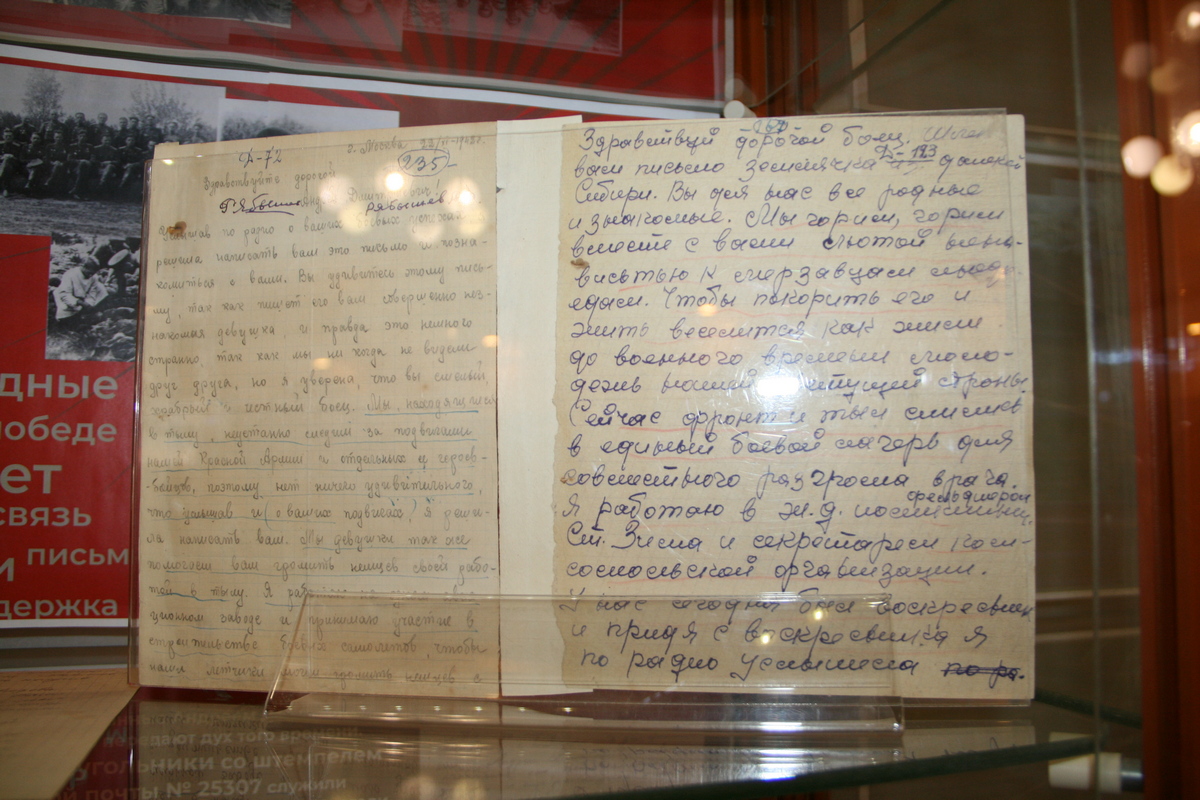 дные
победе
ет
связь
и письм
держка
Ф-72
г. Москва
235
Здравствуйте дорогой
Рябышев
Услышав по радио о ваших
решила написать вам это письмо и позна-
комиться с вами. Вы удивитесь этому пись-
му, так как пишет его вам совершенно нез-
накомая девушка, и правда это немного
странно, так как мы ни когда не видели
друг друга, но я уверена, что вы смелый,
храбрый и боец. Мы, находящиеся
в тылу, неустанно следим за подвигами
нашей Красной Армии и отдельных её героев-
-бойцов, поэтому нет ничего удивительного,
что услышав и (о ваших подвигах) я реши-
ла написать вам. Мы девушки так же
помогаем вам громить немцев своей рабо-
той в тылу. Я работаю на авиа-
ционном заводе и принимаю участие в
строительстве боевых самолётов, чтобы
наши летчики могли громить немцев с
Здравствуй дорогой боец. Шлёт
вам письмо землячка Ф-123 далекой
Сибири. Вы для нас все родные
и знакомые. Мы горим, горим
вместе с вами лютой нена-
вистью к мерзавцам людо-
едам. Чтобы покорить его и
жить веселится как жили
до военного времени моло-
дежь нашей цветущей страны
Сейчас фронт и тыл слились
в единый боевой лагерь для
совместного разгрома врага.
фельдшером
Я работаю в ж.д.
Ст. Зима и секретарем ком-
сомольской организации.
У нас сегодня был воскресник
и придя с воскресника я
по радио услышала по ра.
передают дух того времени
угольники со штемпелем
почты № 25307 служили